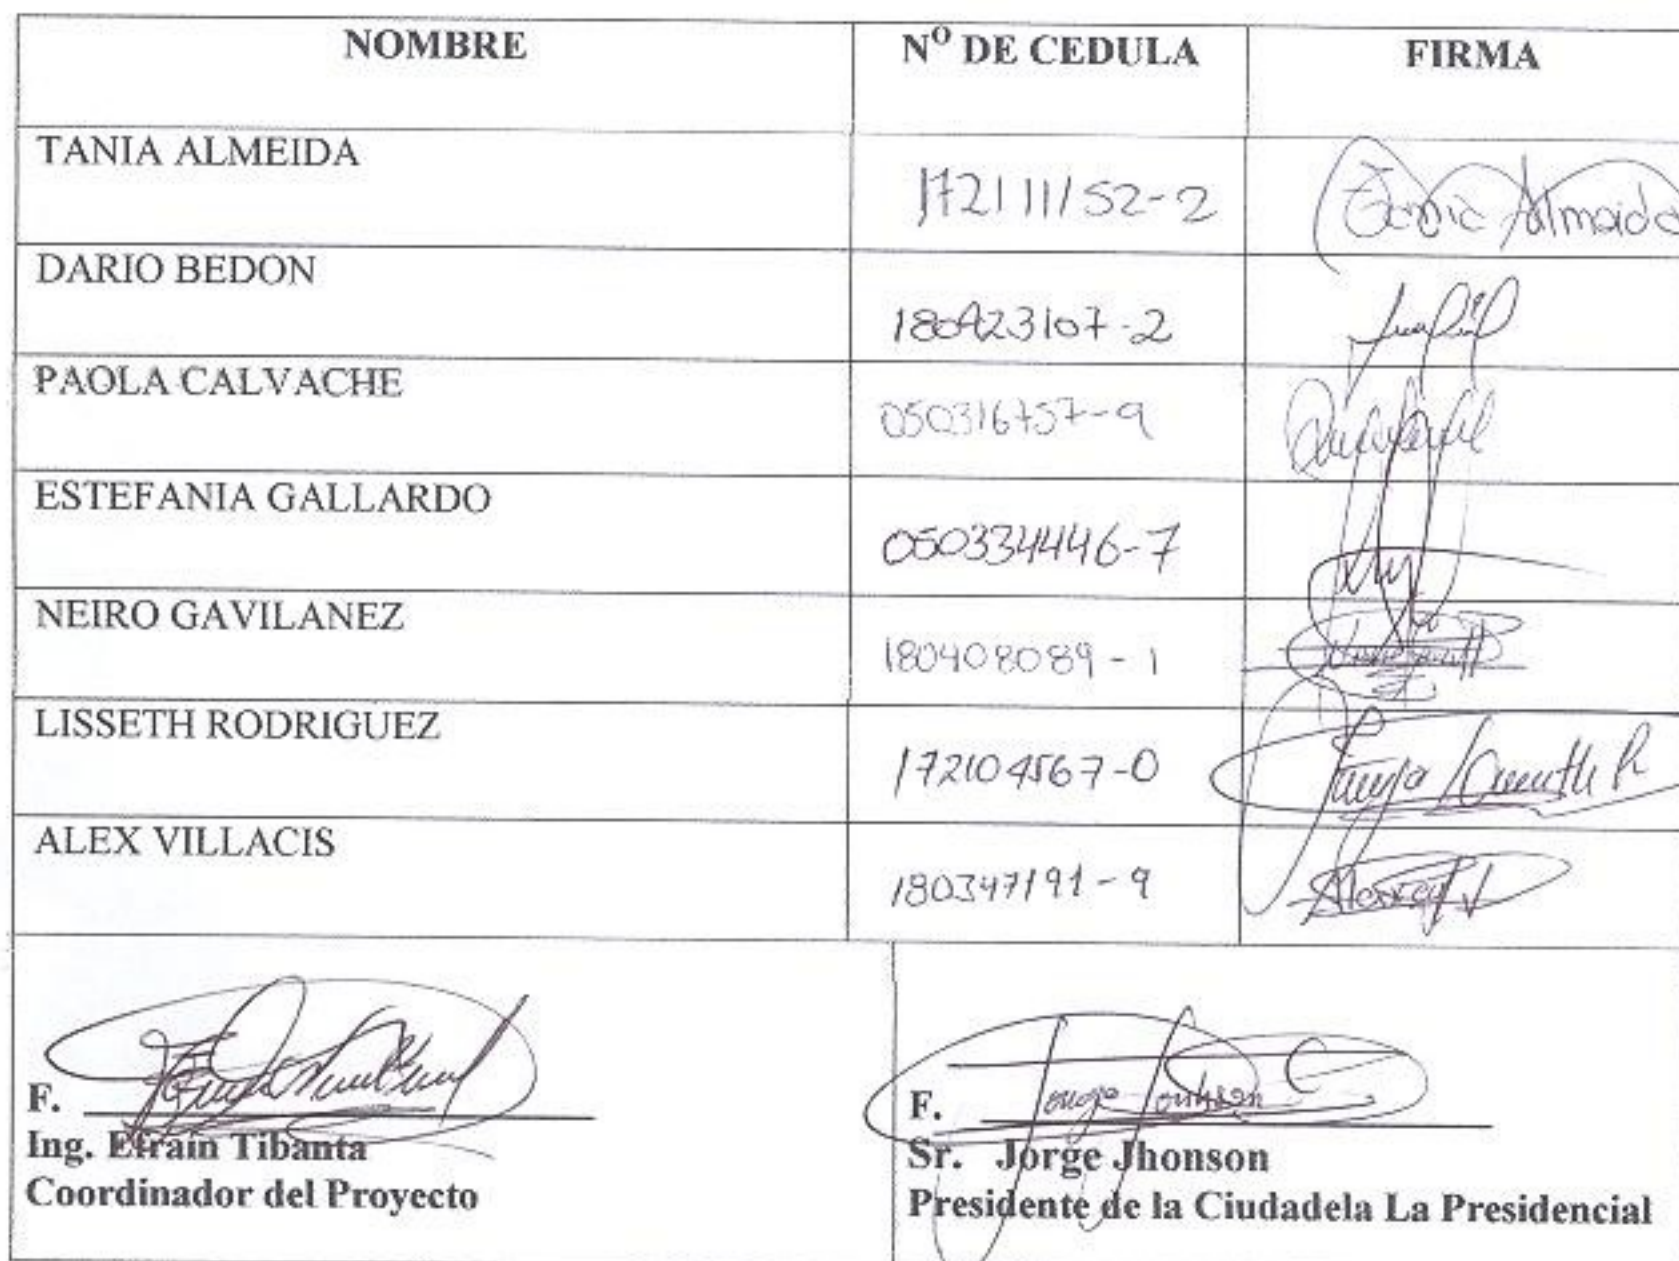 NOMBRE Nº DE CEDULA FIRMA
TANIA ALMEIDA 172111152-2 Tania Almeida
DARIO BEDON 180423107-2
PAOLA CALVACHE 050316757-9
ESTEFANIA GALLARDO 050334446-7
NEIRO GAVILANEZ 180408089-1
LISSETH RODRIGUEZ 172104567-0
ALEX VILLACIS 180347191-9
F.
Ing. Efraín Tibanta
Coordinador del Proyecto
F. Jorge Jonhson
Sr. Jorge Jhonson
Presidente de la Ciudadela La Presidencial